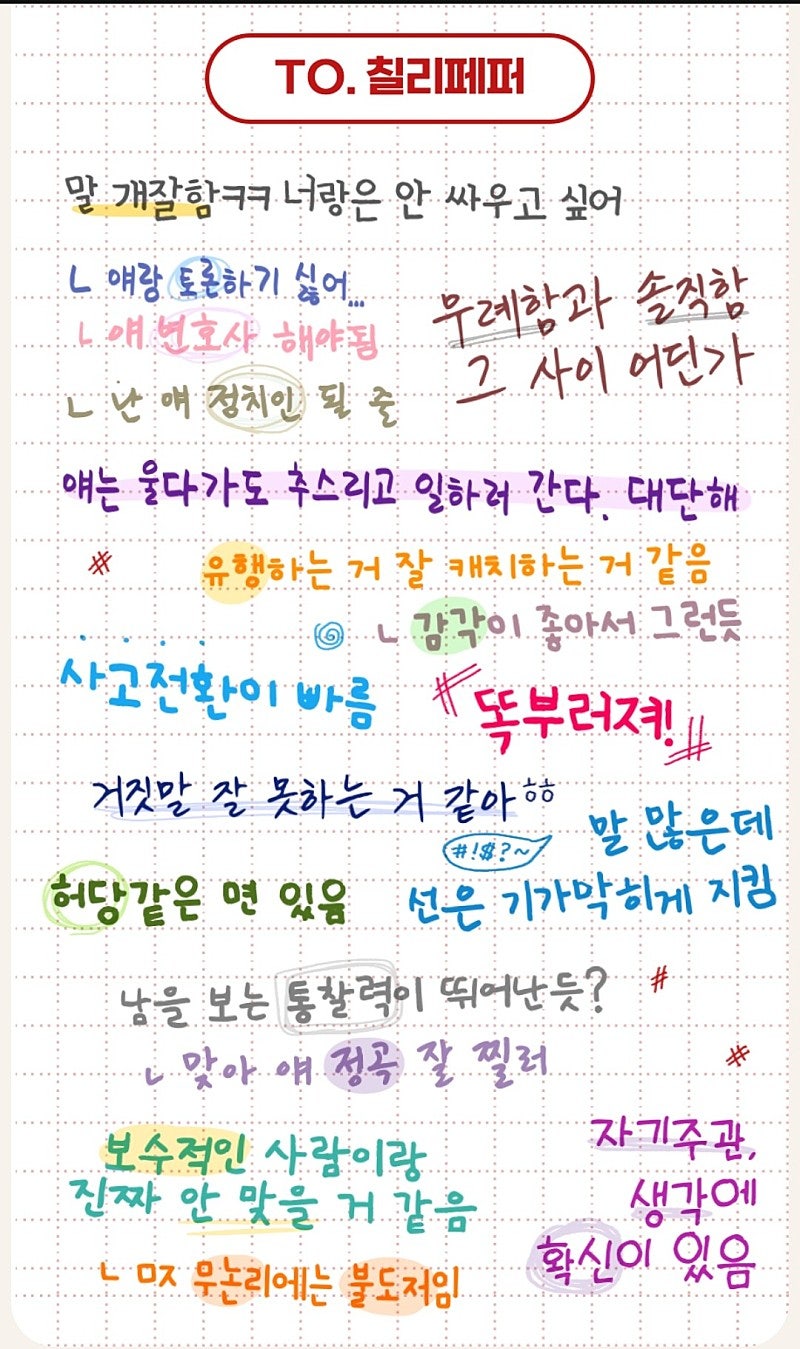 TO. 칠리페퍼
말 개잘함ㅋㅋ 너랑은 안 싸우고 싶어
ㄴ 얘랑 토론하기 싫어...
ㄴ 얘 변호사 해야됨
ㄴ 난 얘 정치인 될 줄
무례함과 솔직함
그 사이 어딘가
얘는 울다가도 추스리고 일하러 간다. 대단해
유행하는 거 잘 캐치하는 거 같음
ㄴ 감각이 좋아서 그런듯
사고전환이 빠름
똑부러져!
거짓말 잘 못하는 거 같아ㅎㅎ
#!$?~
말 많은데
선은 기가막히게 지킴
허당같은 면 있음
남을 보는 통찰력이 뛰어난듯?
ㄴ 맞아 얘 정곡 잘 찔러
보수적인 사람이랑
진짜 안 맞을 거 같음
ㄴ ㅁㅈ 무논리에는 불도저임
자기주관,
생각에
확신이 있음